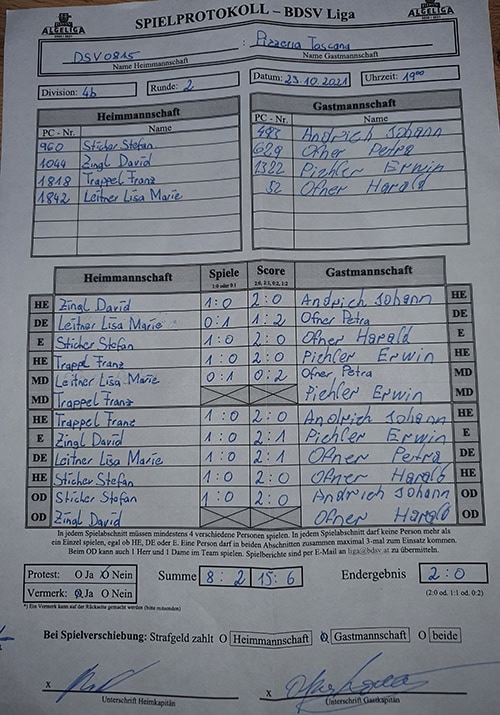 ALGELIGA
SPIELPROTOKOLL – BDSV Liga
ALGELIGA
DSV0815 : Pizzeria Toscana
Name Heimmannschaft Name Gastmannschaft
Division: 4b Runde: 2 Datum: 23.10.2021 Uhrzeit: 19⁰⁰
Heimmannschaft Gastmannschaft
PC - Nr. Name PC - Nr. Name
960 Sticher Stefan 493 Andrich Johann
1044 Zingl David 629 Ofner Petra
1818 Trappel Franz 1322 Pichler Erwin
1842 Leitner Lisa Marie 52 Ofner Harald
Heimmannschaft Spiele Score Gastmannschaft
1:0 oder 0:1 2:0, 2:1, 0:2, 1:2
HE Zingl David 1:0 2:0 Andrich Johann HE
DE Leitner Lisa Marie 0:1 1:2 Ofner Petra DE
E Sticher Stefan 1:0 2:0 Ofner Harald E
HE Trappel Franz 1:0 2:0 Pichler Erwin HE
MD Leitner Lisa Marie 0:1 0:2 Ofner Petra MD
MD Trappel Franz Pichler Erwin MD
HE Trappel Franz 1:0 2:0 Andrich Johann HE
E Zingl David 1:0 2:1 Pichler Erwin E
DE Leitner Lisa Marie 1:0 2:1 Ofner Petra DE
HE Sticher Stefan 1:0 2:0 Ofner Harald HE
OD Sticher Stefan 1:0 2:0 Andrich Johann OD
OD Zingl David Ofner Harald OD
In jedem Spielabschnitt müssen mindestens 4 verschiedene Personen spielen. In jedem Spielabschnitt darf keine Person mehr als
ein Einzel spielen, egal ob HE, DE oder E. Eine Person darf in beiden Abschnitten zusammen maximal 3-mal zum Einsatz kommen.
Beim OD kann auch 1 Herr und 1 Dame im Team spielen. Spielberichte sind per E-Mail an liga@bdsv.at zu übermitteln.
Protest: O Ja O Nein Summe 8 : 2 15 : 6 Endergebnis 2 : 0
Vermerk: O Ja O Nein (2:0 od. 1:1 od. 0:2)
*) Ein Vermerk kann auf der Rückseite gemacht werden (bitte ankreuzen)
Bei Spielverschiebung: Strafgeld zahlt O Heimmannschaft O Gastmannschaft O beide
x x
Unterschrift Heimkapitän Unterschrift Gastkapitän